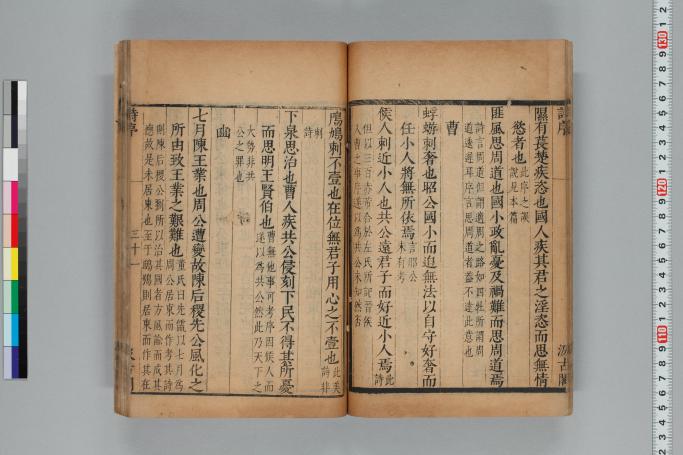 隰有萇楚疾恣也國人疾其君之淫恣而思無情
慾者也此序之誤說見本篇
匪風思周道也國小政亂憂及禍難而思周道焉
詩言周道但謂適周之路如四牡所謂周
道逶遲耳序言思周道者蓋不達此意也
曹
蜉蝣刺奢也昭公國小而迫無法以自守好奢而
任小人將無所依焉言昭公未有考
候人刺近小人也共公遠君子而好近小人焉此詩
但以三百赤芾合於左氏所記晉侯
入曹之事序遂以為共公未知然否
鳲鳩刺不壹也在位無君子用心之不壹也此美詩非
刺詩
下泉思治也曹人疾共公侵刻下民不得其所憂
而思明王賢伯也曹無他事可考序因候人而
遂以為共公然此乃天下之
大勢非共
公之罪也
豳
七月陳王業也周公遭變故陳后稷先公風化之
所由致王業之艱難也董氏曰先儒以七月為
周公居東而作考其詩
則陳后稷公到所以治其國者方風諭而成其
德故是未居東也至于鴟鴞則居東而作其在
詩序
三十一
汲古閣